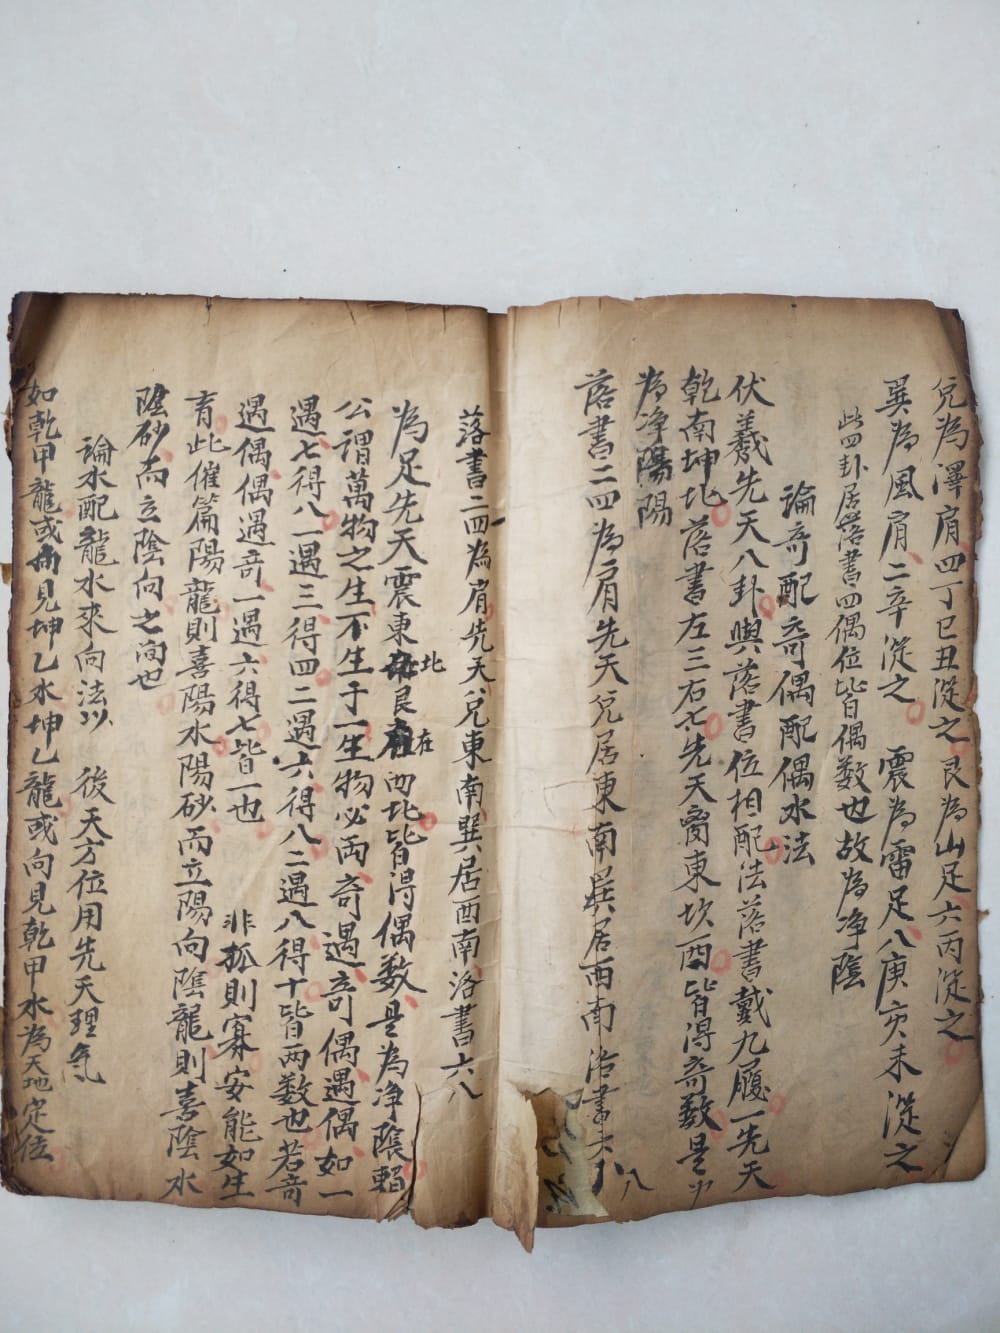 兌為澤肩四丁巳丑從之艮為山足六丙從之
巽為風肩二辛從之 震為雷足八庚亥未從之
此四卦居落書四偶位皆偶数也故為净陰
論奇配奇偶配偶水法
伏羲先天八卦與落書位相配法落書戴九履一先天
乾南坤北落書左三右七先天离東坎酉皆得奇数是
為净陽陽
落書二四為肩先天兌居東南巽居西南洛書六八
落書二四為肩先天兌東南巽居酉南洛書六八
為足先天震東北艮在西北皆得偶数是為净陰賴
公謂萬物之生不生于一生物必两奇遇奇偶遇偶如一
遇七得八一遇三得四二遇六得八二遇八得十皆两数也若奇
遇偶偶遇奇一遇六得七皆一也 非孤則寡安能如生
育此催篇陽龍則喜陽水陽砂而立陽向陰龍則喜陰水
陰砂而立陰向之洵也
論水配龍水來向法以 後天方位用先天理氣
如乾甲龍或向見坤乙水坤乙龍或向見乾甲水為天地定位